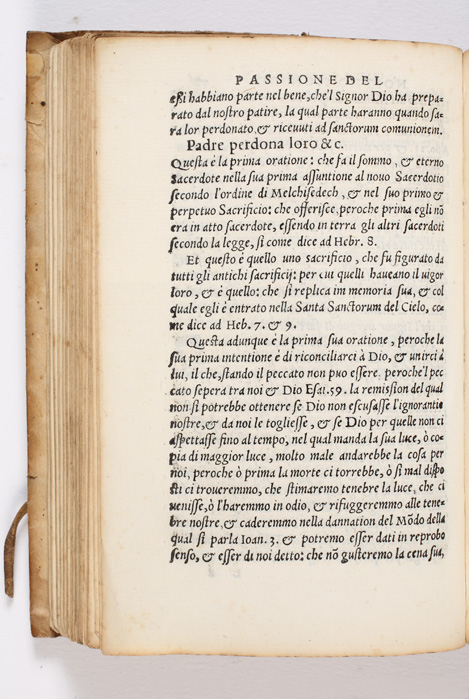 PASSIONE DEL
eßi habbiano parte nel bene, che'l Signor Dio ha prepa-
rato dal nostro patire, la qual parte haranno quando sa-
ra lor perdonato, & riceuuti ad sanctorum comunionem.
Padre perdona loro &c.
Questa è la prima oratione: che fa il sommo, & eterno
Sacerdote nella sua prima assuntione al nouo Sacerdotio
secondo l'ordine di Melchisedech, & nel suo primo &
perpetuo Sacrificio: che offerisce, peroche prima egli nõ
era in atto sacerdote, essendo in terra gli altri sacerdoti
secondo la legge, si come dice ad Hebr. 8.
Et questo è quello uno sacrificio, che fu figurato da
tutti gli antichi sacrificij: per cui quelli haueano il uigor
loro, & è quello: che si replica im memoria sua, & col
quale egli è entrato nella Santa Sanctorum del Cielo, co-
me dice ad Heb. 7. & 9.
Questa adunque è la prima sua oratione, peroche la
sua prima intentione è di riconciliarci à Dio, & unirci à
lui, il che, stando il peccato non puo essere. peroche'l pec
cato sepera tra noi & Dio Esai. 59. la remission del qual
non si potrebbe ottenere se Dio non escusasse l'ignorantie
nostre, & da noi le togliesse, & se Dio per quelle non ci
aspettasse fino al tempo, nel qual manda la sua luce, ò co-
pia di maggior luce, molto male andarebbe la cosa per
noi, peroche ò prima la morte ci torrebbe, ò si mal dispo
sti ci troueremmo, che stimaremo tenebre la luce, che ci
uenisse, ò l'haremmo in odio, & rifuggeremmo alle tene-
bre nostre, & caderemmo nella dannation del Mõdo della
qual si parla Ioan. 3. & potremo esser dati in reprobo
senso, & esser di noi detto: che nõ gusteremo la cena sua,